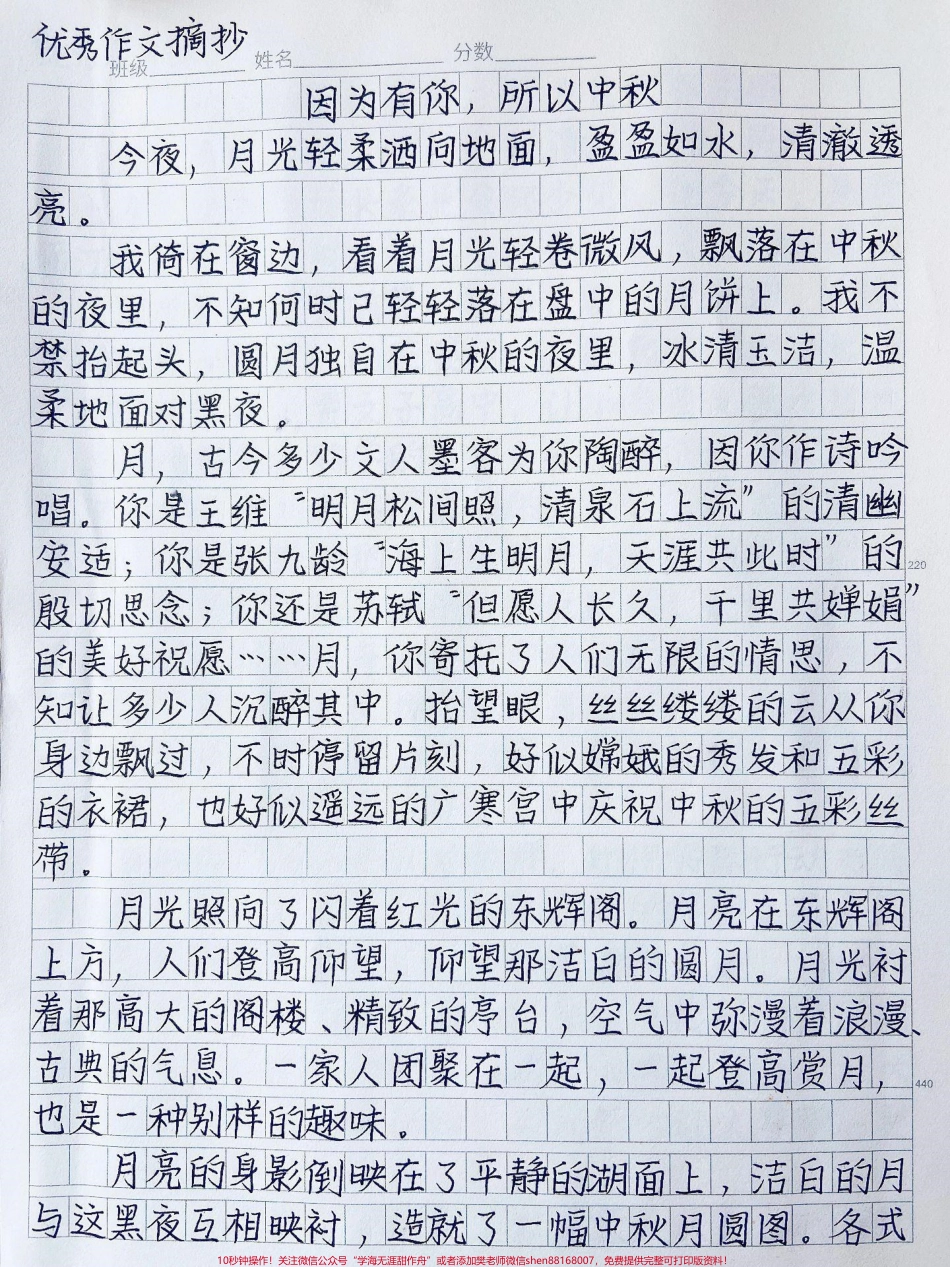 优秀作文摘抄
班级 姓名 分数
因为有你，所以中秋
今夜，月光轻柔洒向地面，盈盈如水，清澈透
亮。
我倚在窗边，看着月光轻卷微风，飘落在中秋
的夜里，不知何时已轻轻落在盘中的月饼上。我不
禁抬起头，圆月独自在中秋的夜里，冰清玉洁，温
柔地面对黑夜。
月，古今多少文人墨客为你陶醉，因你作诗吟
唱。你是王维“明月松间照，清泉石上流”的清幽
安适；你是张九龄“海上生明月，天涯共此时”的
220
殷切思念；你还是苏轼“但愿人长久，千里共婵娟”
的美好祝愿……月，你寄托了人们无限的情思，不
知让多少人沉醉其中。抬望眼，丝丝缕缕的云从你
身边飘过，不时停留片刻，好似嫦娥的秀发和五彩
的衣裙，也好似遥远的广寒宫中庆祝中秋的五彩丝
带。
月光照向了闪着红光的东辉阁。月亮在东辉阁
上方，人们登高仰望，仰望那洁白的圆月。月光衬
着那高大的阁楼、精致的亭台，空气中弥漫着浪漫、
古典的气息。一家人团聚在一起，一起登高赏月，
440
也是一种别样的趣味。
月亮的身影倒映在了平静的湖面上，洁白的月
与这黑夜互相映衬，造就了一幅中秋月圆图。各式
10秒钟操作！关注微信公众号“学海无涯甜作舟”或者添加樊老师微信shen88168007，免费提供完整可打印版资料！